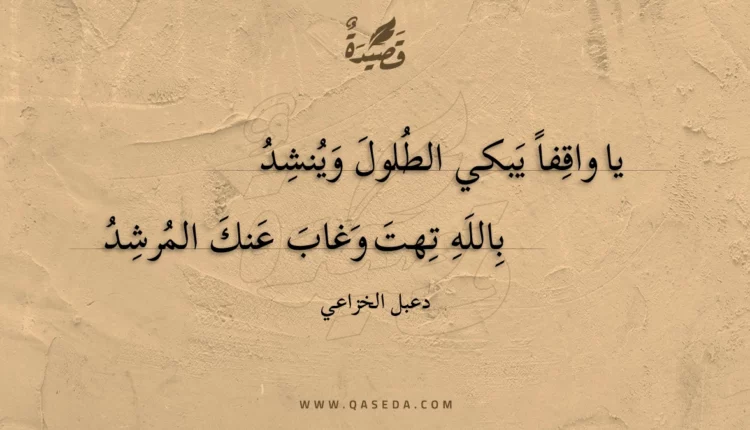 قَصِيدَةٌ
يا واقِفاً يَبكي الطُلولَ وَيُنشِدُ
بِاللَهِ تِهتَ وَغابَ عَنكَ المُرشِدُ
دعبل الخزاعي
WWW.QASEDA.COM